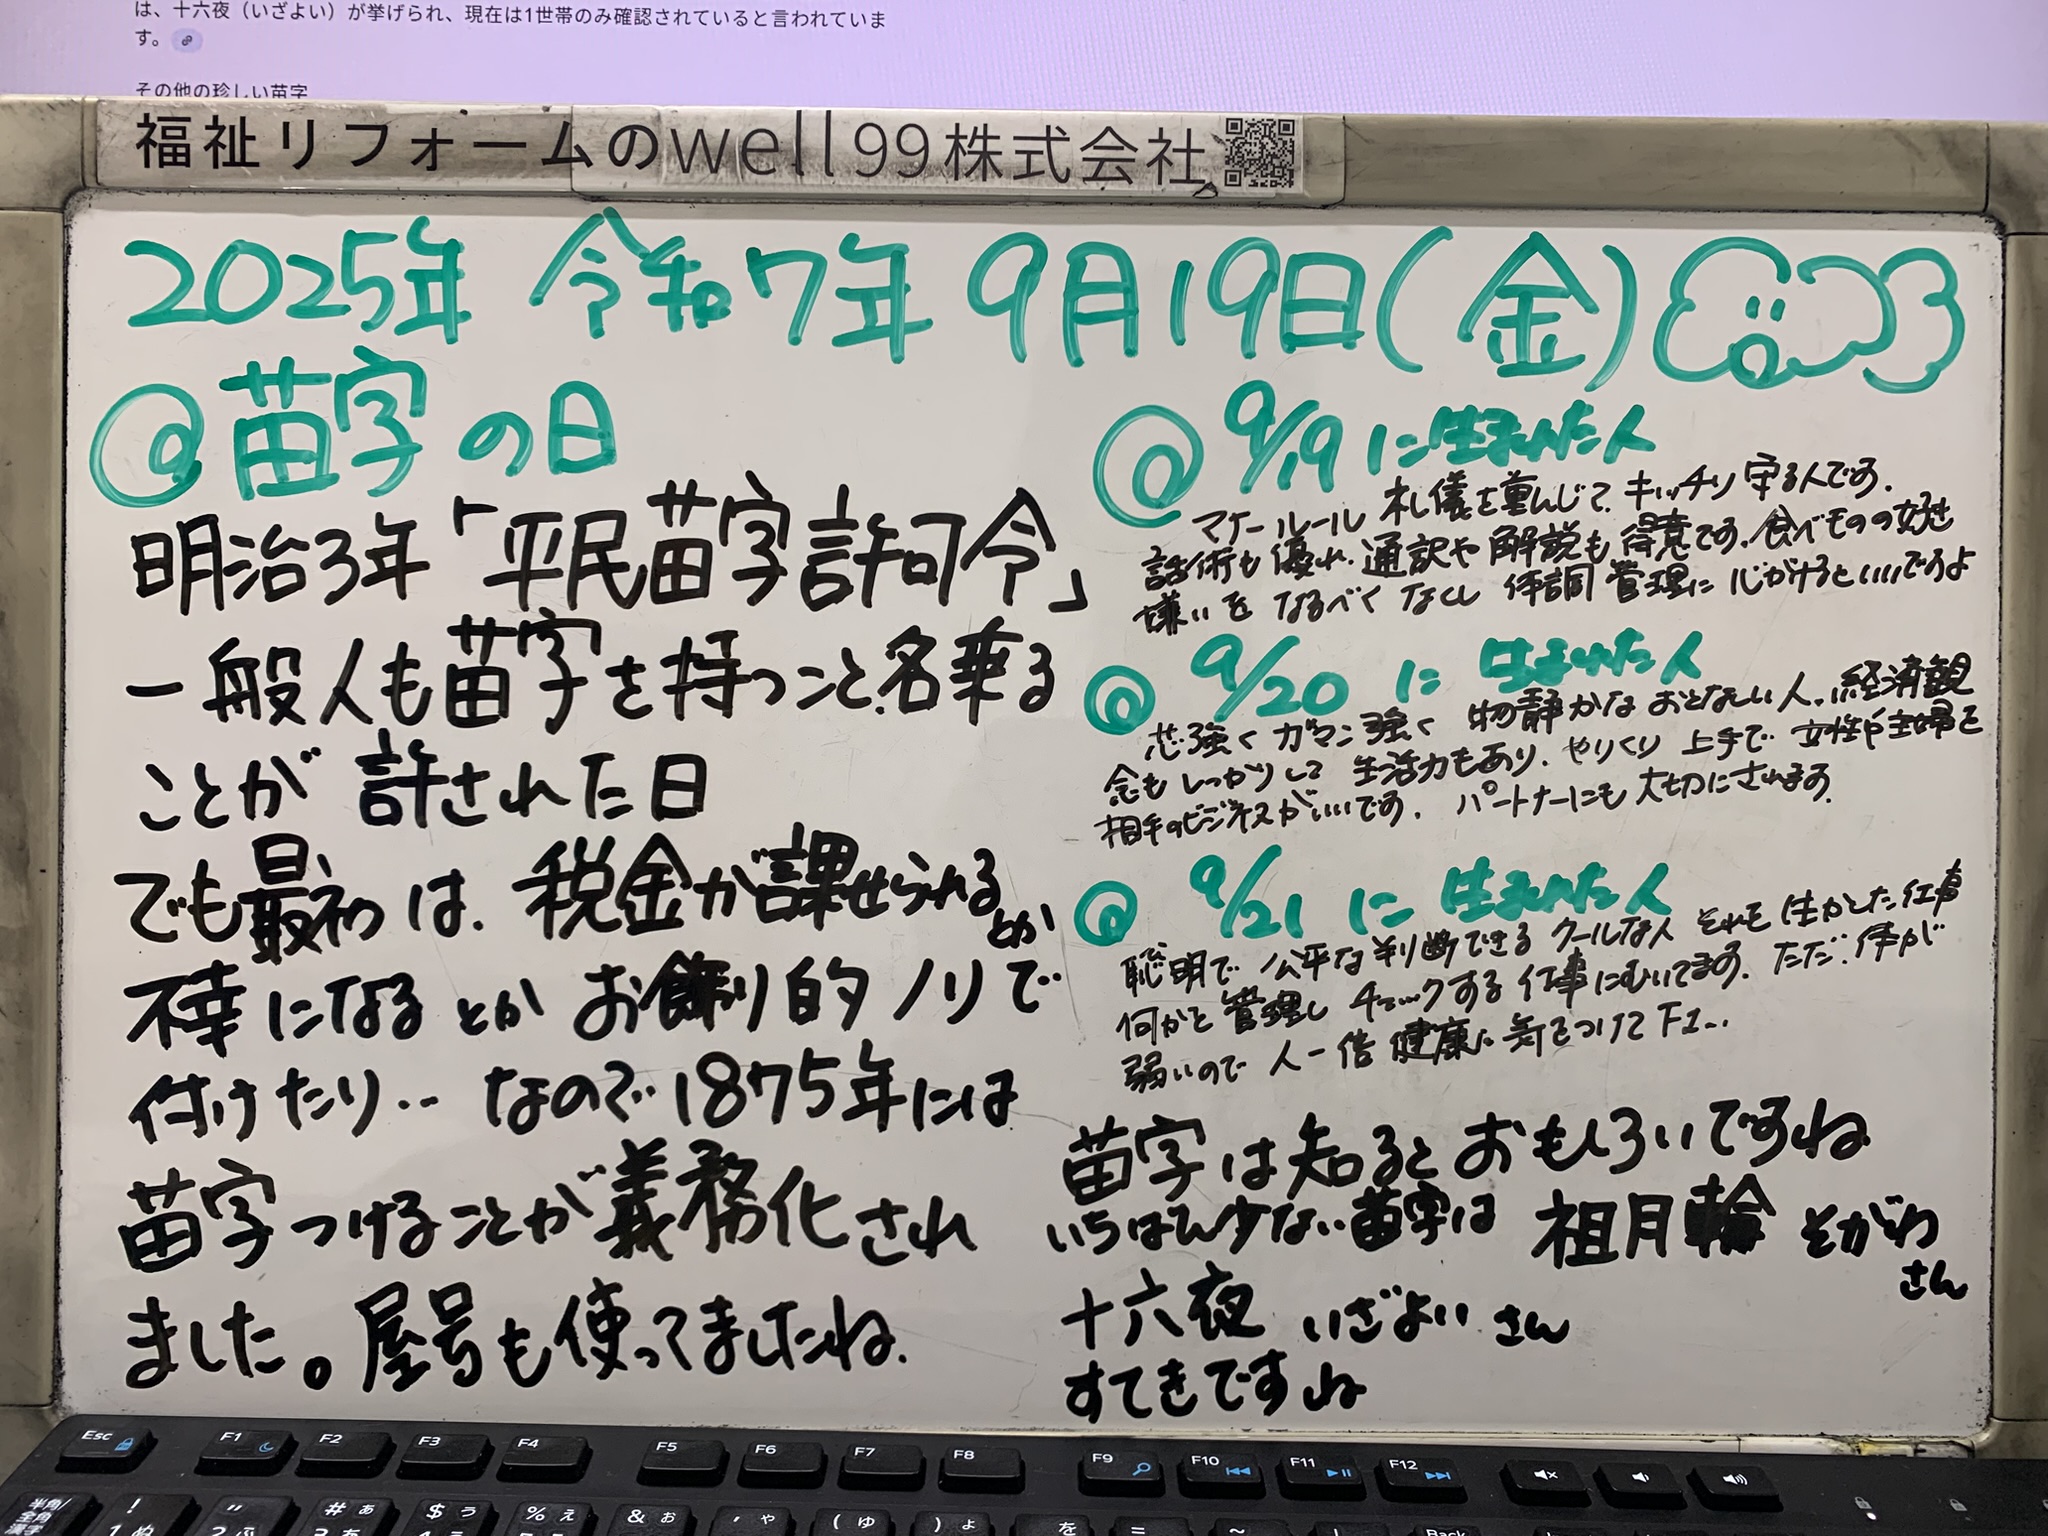 は、十六夜（いざよい）が挙げられ、現在は1世帯のみ確認されていると言われていま
す。
その他の珍しい苗字
福祉リフォームのwell99株式会社
2025年 令和7年 9月19日(金)
@苗字の日
明治3年「平民苗字許可令」
一般人も苗字を持つこと、名乗る
ことが許された日
でも最初は、税金が課せられるとか
不幸になるとかお飾り的ノリで
付けたり‥なので1875年には
苗字つけることが義務化され
ました。屋号も使ってましたね.
@ 9/19に生まれた人
マナールール 礼儀を重んじて、キッチリ守る人です.
話術も優れ、通訳や解説も得意です. 食べものの好き
嫌いをなるべくなくし体調管理に心がけるといいですよ
@ 9/20に生まれた人
芯強くガマン強く物静かなおとなしい人. 経済観
念もしっかりして生活力もあり、やりくり上手で女性や主婦を
相手のビジネスがいいです. パートナーにも大切にされます.
@ 9/21に生まれた人
聡明で公平な判断できるクールな人 それを生かした仕事
何かを管理しチェックする仕事にむいてます. ただ、体が
弱いので人一倍健康に気をつけて下さい...
苗字は知るとおもしろいですね
いちばん少ない苗字は 祖月輪 そがわ
さん
十六夜 いざよい さん
すてきですね
Esc F1 F2 F3 F4 F5 F6 F7 F8 F9 F10 F11 F12
半角/ ! " # ぁ $ ぅ % ぇ & ぉ ' ゃ ( ゅ ) ょ を = ~
全角 Back
漢字